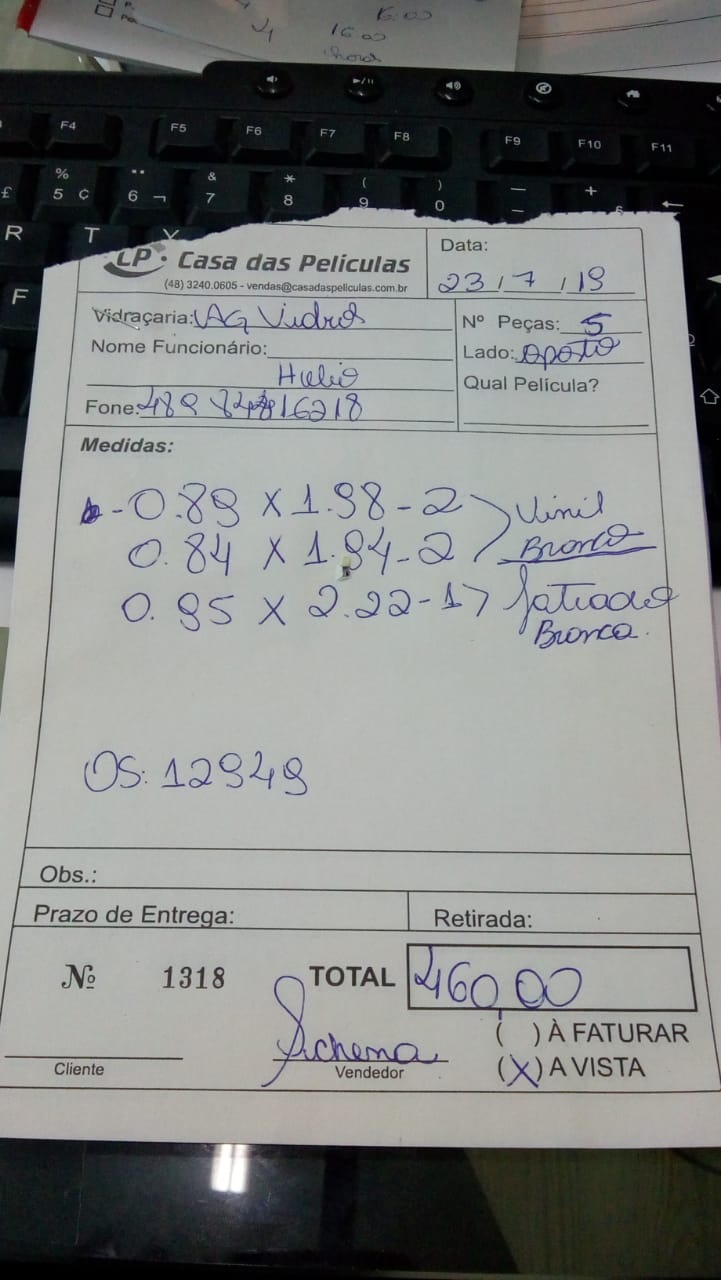 16:00
16:00
F4 F5 F6 F7 F8 F9 F10 F11
% 5 ¢ 6 ¬ & 7 * 8 ( 9 ) 0 — +
£
R T Y
F
LP · Casa das Películas
(48) 3240.0605 - vendas@casadaspeliculas.com.br
Data:
23 / 7 / 19
Vidraçaria: AG Vidros
Nome Funcionário:
Helio
Fone:
Nº Peças: 5
Lado: oposto
Qual Película?
Medidas:
- 0.89 X 1.98 - 2 > Vinil
0.84 X 1.94 - 2 Branco
0.95 X 2.22 - 1 > Jatiado
Branco.
OS: 12949
Obs.:
Prazo de Entrega:
Retirada:
Nº 1318
TOTAL 460,00
( ) À FATURAR
(X) A VISTA
Cliente
Vendedor